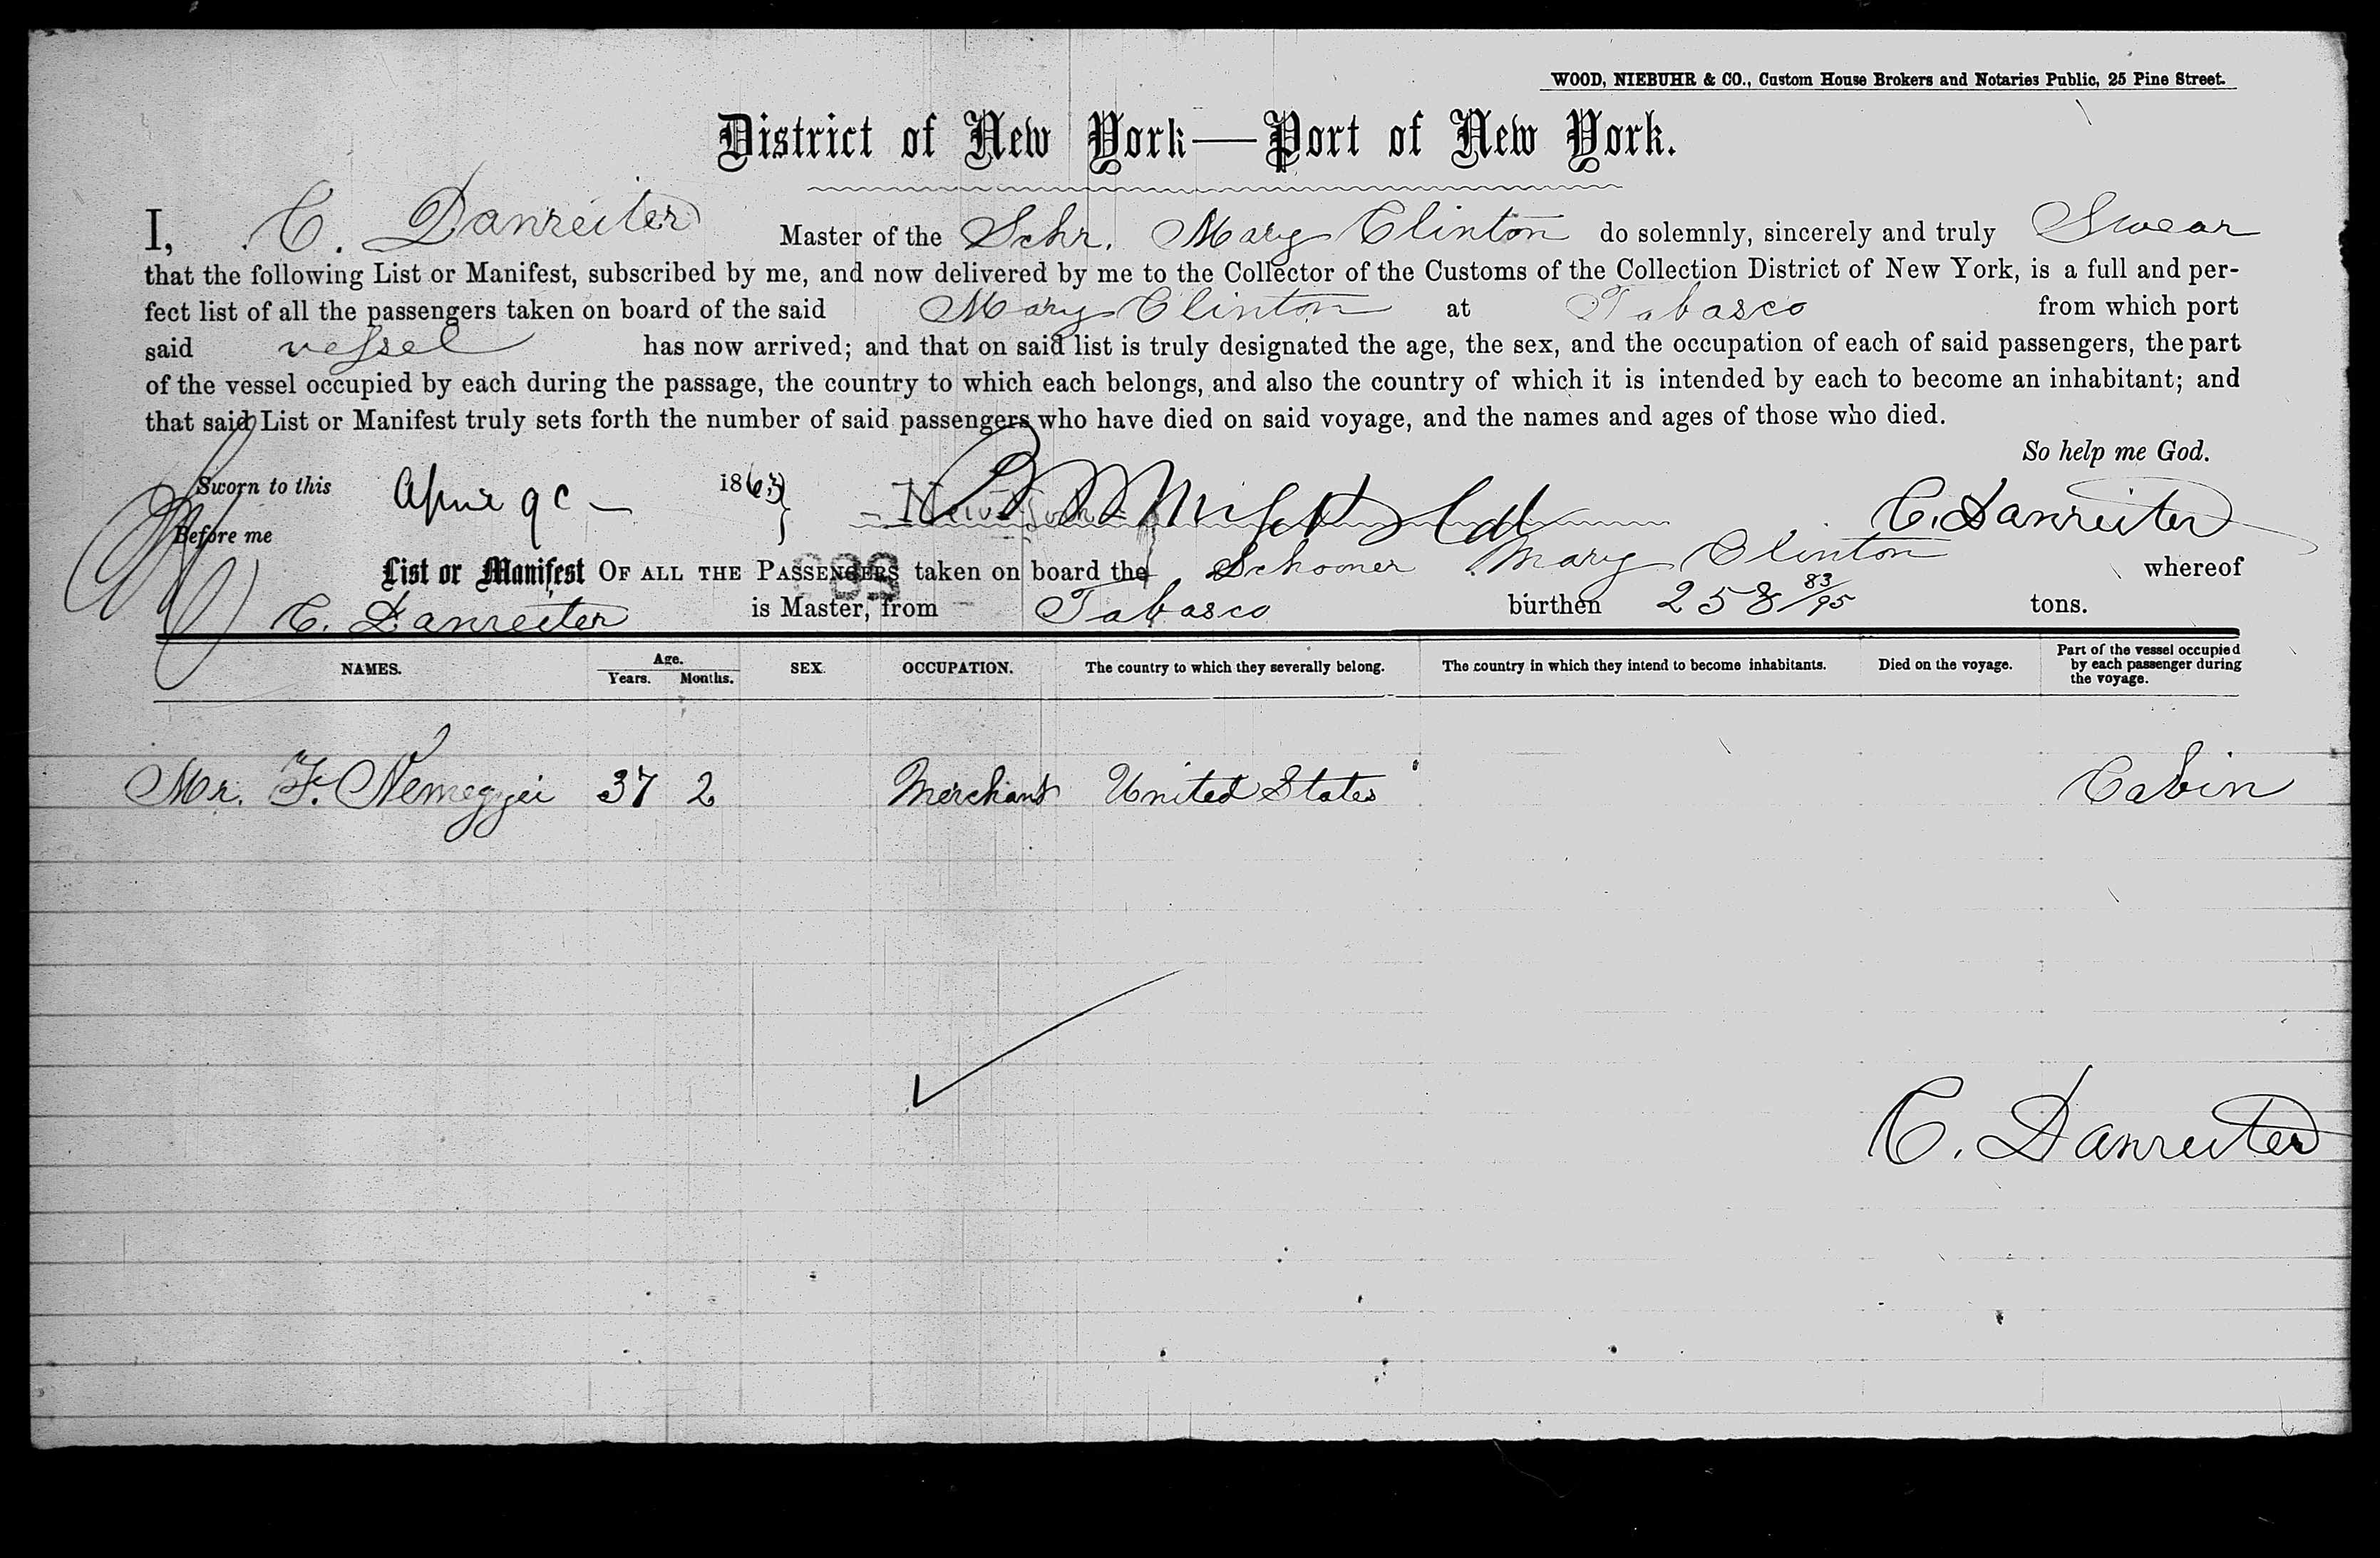 WOOD, NIEBUHR & CO., Custom House Brokers and Notaries Public, 25 Pine Street.
District of New York—Port of New York.
I, C. Danreiter Master of the Schr. Mary Clinton do solemnly, sincerely and truly Swear
that the following List or Manifest, subscribed by me, and now delivered by me to the Collector of the Customs of the Collection District of New York, is a full and per-
fect list of all the passengers taken on board of the said Mary Clinton at Tabasco from which port
said vessel has now arrived; and that on said list is truly designated the age, the sex, and the occupation of each of said passengers, the part
of the vessel occupied by each during the passage, the country to which each belongs, and also the country of which it is intended by each to become an inhabitant; and
that said List or Manifest truly sets forth the number of said passengers who have died on said voyage, and the names and ages of those who died.
So help me God.
Sworn to this April 9 1863 C. Danreiter
Before me
List or Manifest OF ALL THE PASSENGERS taken on board the Schooner Mary Clinton whereof
C. Danreiter is Master, from Tabasco burthen 258 83/95 tons.
NAMES. Age. Years. Months. SEX. OCCUPATION. The country to which they severally belong. The country in which they intend to become inhabitants. Died on the voyage. Part of the vessel occupied by each passenger during the voyage.
Mr. F. Nemegyei 37 2 Merchant United States Cabin
C. Danreiter